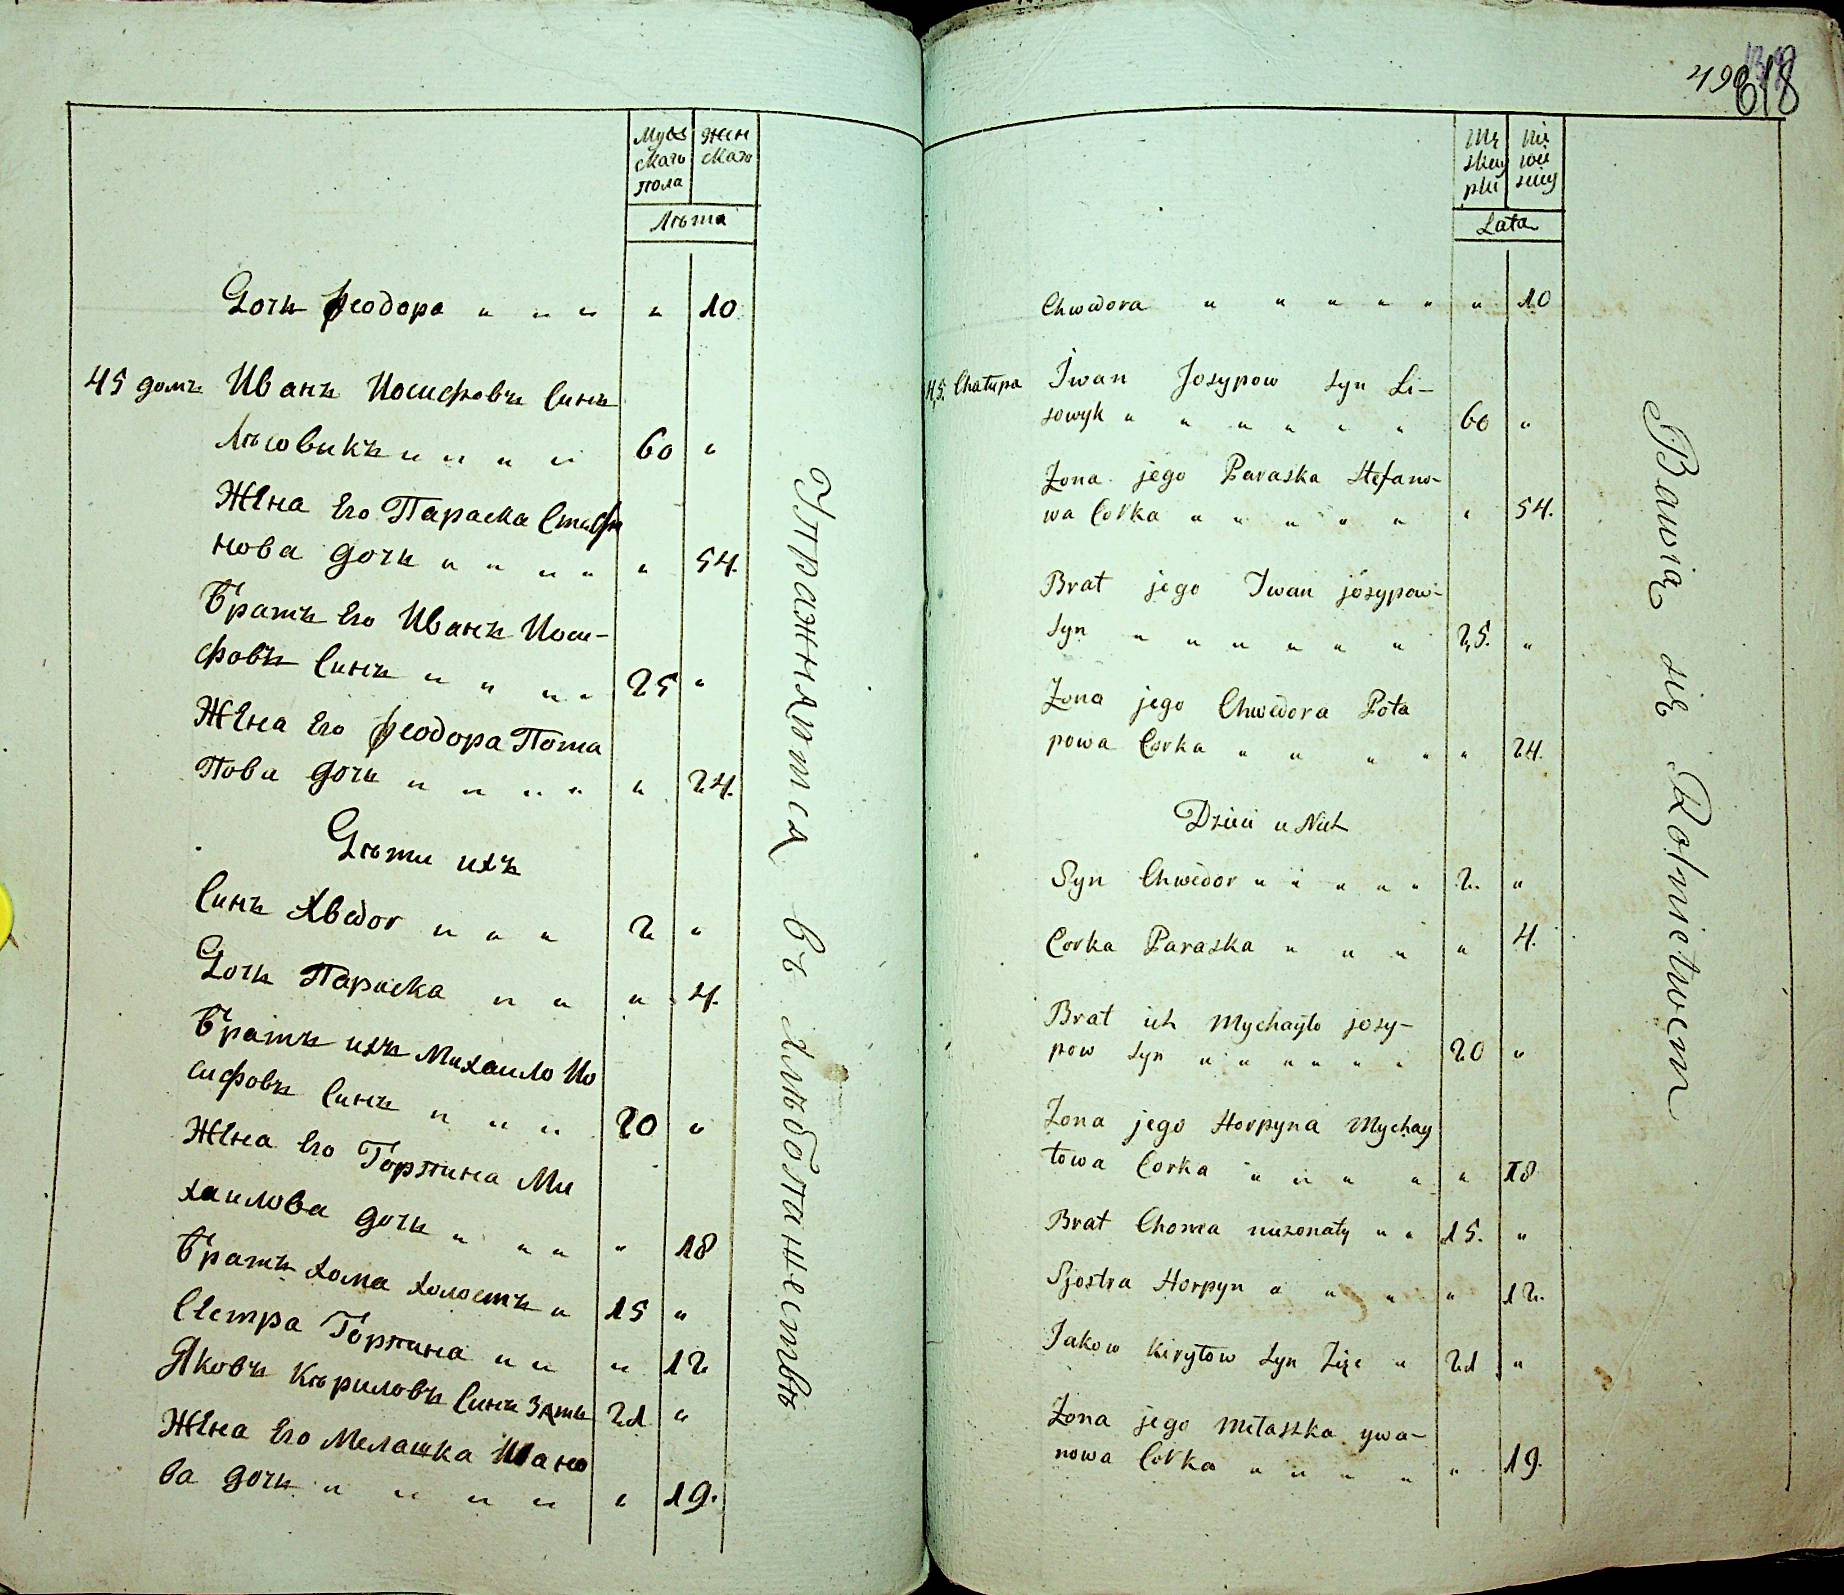 Мужскаго пола
Женскаго
Лѣта
Дочь Феодора " " " " 10
45 домъ Иванъ Иосифовъ Синъ
Лѣсовикъ " " " " 60 "
Жена Его Параска Стефа
нова дочь " " " " " 54.
Братъ Его Иванъ Иоси-
фовъ Синъ " " " " 25 "
Жена Его Феодора Пота
пова дочь " " " " " 24.
Дѣти ихъ
Синъ Хведоr " " " 2 "
Дочь Параска " " " 4.
Братъ ихъ Михаило Ио
сифовъ Синъ " " " 20 "
Жена Его Горпина Ми
хаилова дочь " " " " 18
Братъ Хома холостъ " 15 "
Сестра Горпина " " " 12
Яковъ Кѣриловъ Синъ Зять 21 "
Жена Его Мелашка Ивано
ва дочь " " " " " 19.
Упражняются въ хлѣбопашествѣ
618
Lata
Chwedora " " " " " " 10
45. Chałupa Iwan Josypow syn Li-
sowyk " " " " " " 60 "
Żona jego Paraska Stefano-
wa Corka " " " " " " 54.
Brat jego Iwan josypow-
syn " " " " " " 25. "
Żona jego Chwedora Pota
powa Corka " " " " " 24.
Dzieci u Nich
Syn Chwedor " " " " " 2. "
Corka Paraska " " " " 4.
Brat ich Mychayło josy-
pow syn " " " " " " 20 "
Żona jego Horpyna Mychay
łowa Corka " " " " " 18
Brat Choma nieżonaty " " 15. "
Sjostra Horpyn " " " " " 12.
Jakow Kiryłow syn Zięc " 21 "
Żona jego Mełaszka ywa-
nowa Corka " " " " " 19.
Bawią się Rolnictwem